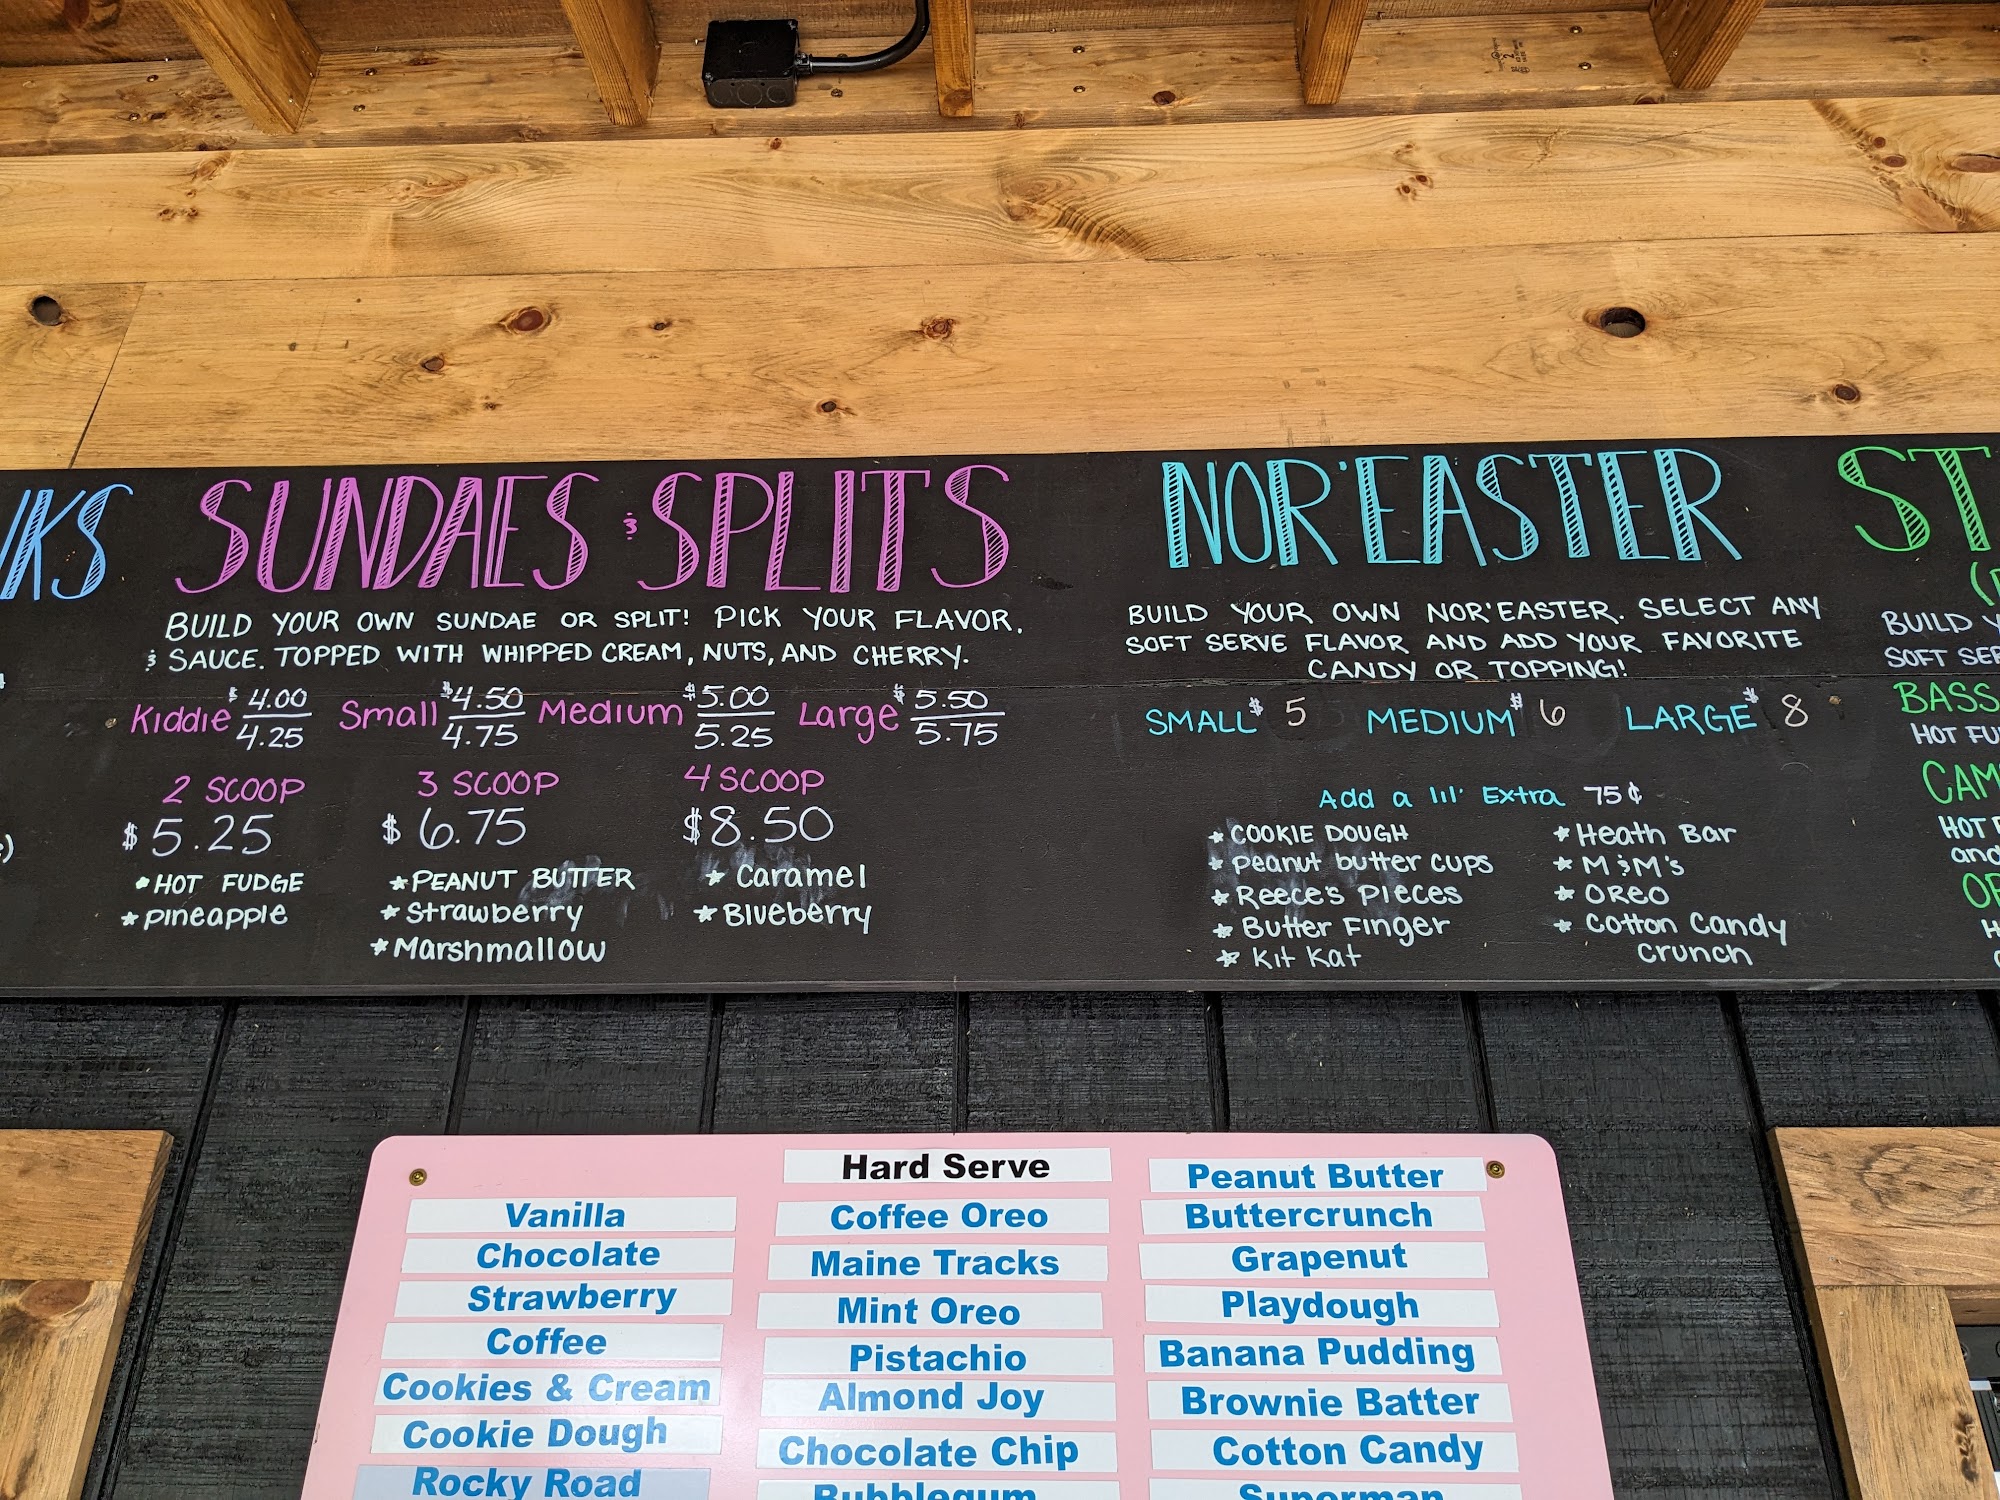 SUNDAES & SPLITS
BUILD YOUR OWN SUNDAE OR SPLIT! PICK YOUR FLAVOR,
& SAUCE. TOPPED WITH WHIPPED CREAM, NUTS, AND CHERRY.
Kiddie $4.00 Small $4.50 Medium $5.00 Large $5.50
4.25 4.75 5.25 5.75
2 SCOOP 3 SCOOP 4 SCOOP
$5.25 $6.75 $8.50
HOT FUDGE
Pineapple
PEANUT BUTTER
Strawberry
Marshmallow
Caramel
Blueberry
NOR'EASTER
BUILD YOUR OWN NOR'EASTER. SELECT ANY
SOFT SERVE FLAVOR AND ADD YOUR FAVORITE
CANDY OR TOPPING!
SMALL $5 MEDIUM $6 LARGE $8
Add a lil' Extra 75¢
COOKIE DOUGH
Peanut butter cups
Reece's Pieces
Butter Finger
Kit Kat
Heath Bar
M&M's
OREO
Cotton Candy
Crunch
BUILD
HOT
and
Hard Serve
Vanilla
Chocolate
Strawberry
Coffee
Cookies & Cream
Cookie Dough
Rocky Road
Coffee Oreo
Maine Tracks
Mint Oreo
Pistachio
Almond Joy
Chocolate Chip
Bubblegum
Peanut Butter
Buttercrunch
Grapenut
Playdough
Banana Pudding
Brownie Batter
Cotton Candy
Superman